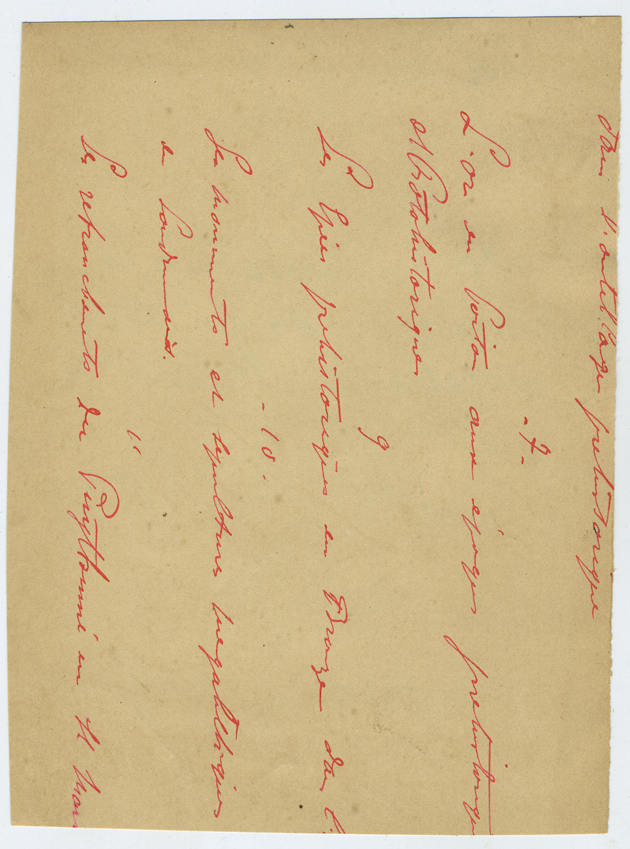 dans l'outillage préhistorique
- 7 -
L'or en Poitou aux époques préhistoriq
et Protohistoriques
9
Les Epées préhistoriques en Bronze dans l
- 10 -
Les monuments et sépultures mégalithiques
en Loudunais.
11
Les retranchements du en St